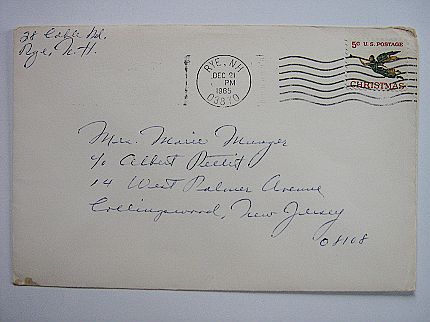 28 Cable Rd.
Rye, N.H.
RYE, NH
DEC 21
PM
1965
03870
5¢ U.S. POSTAGE
CHRISTMAS
Mrs. Marie Munger
c/o Albert Pettit
14 West Palmer Avenue
Collingswood, New Jersey
08108